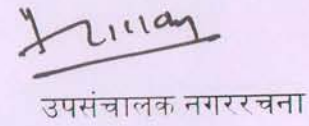 उपसंचालक नगररचना